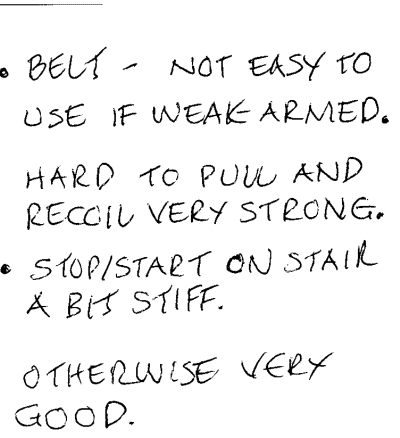 • BELT - NOT EASY TO
USE IF WEAK-ARMED.
HARD TO PULL AND
RECOIL VERY STRONG.
• STOP/START ON STAIR
A BIT STIFF.
OTHERWISE VERY
GOOD.